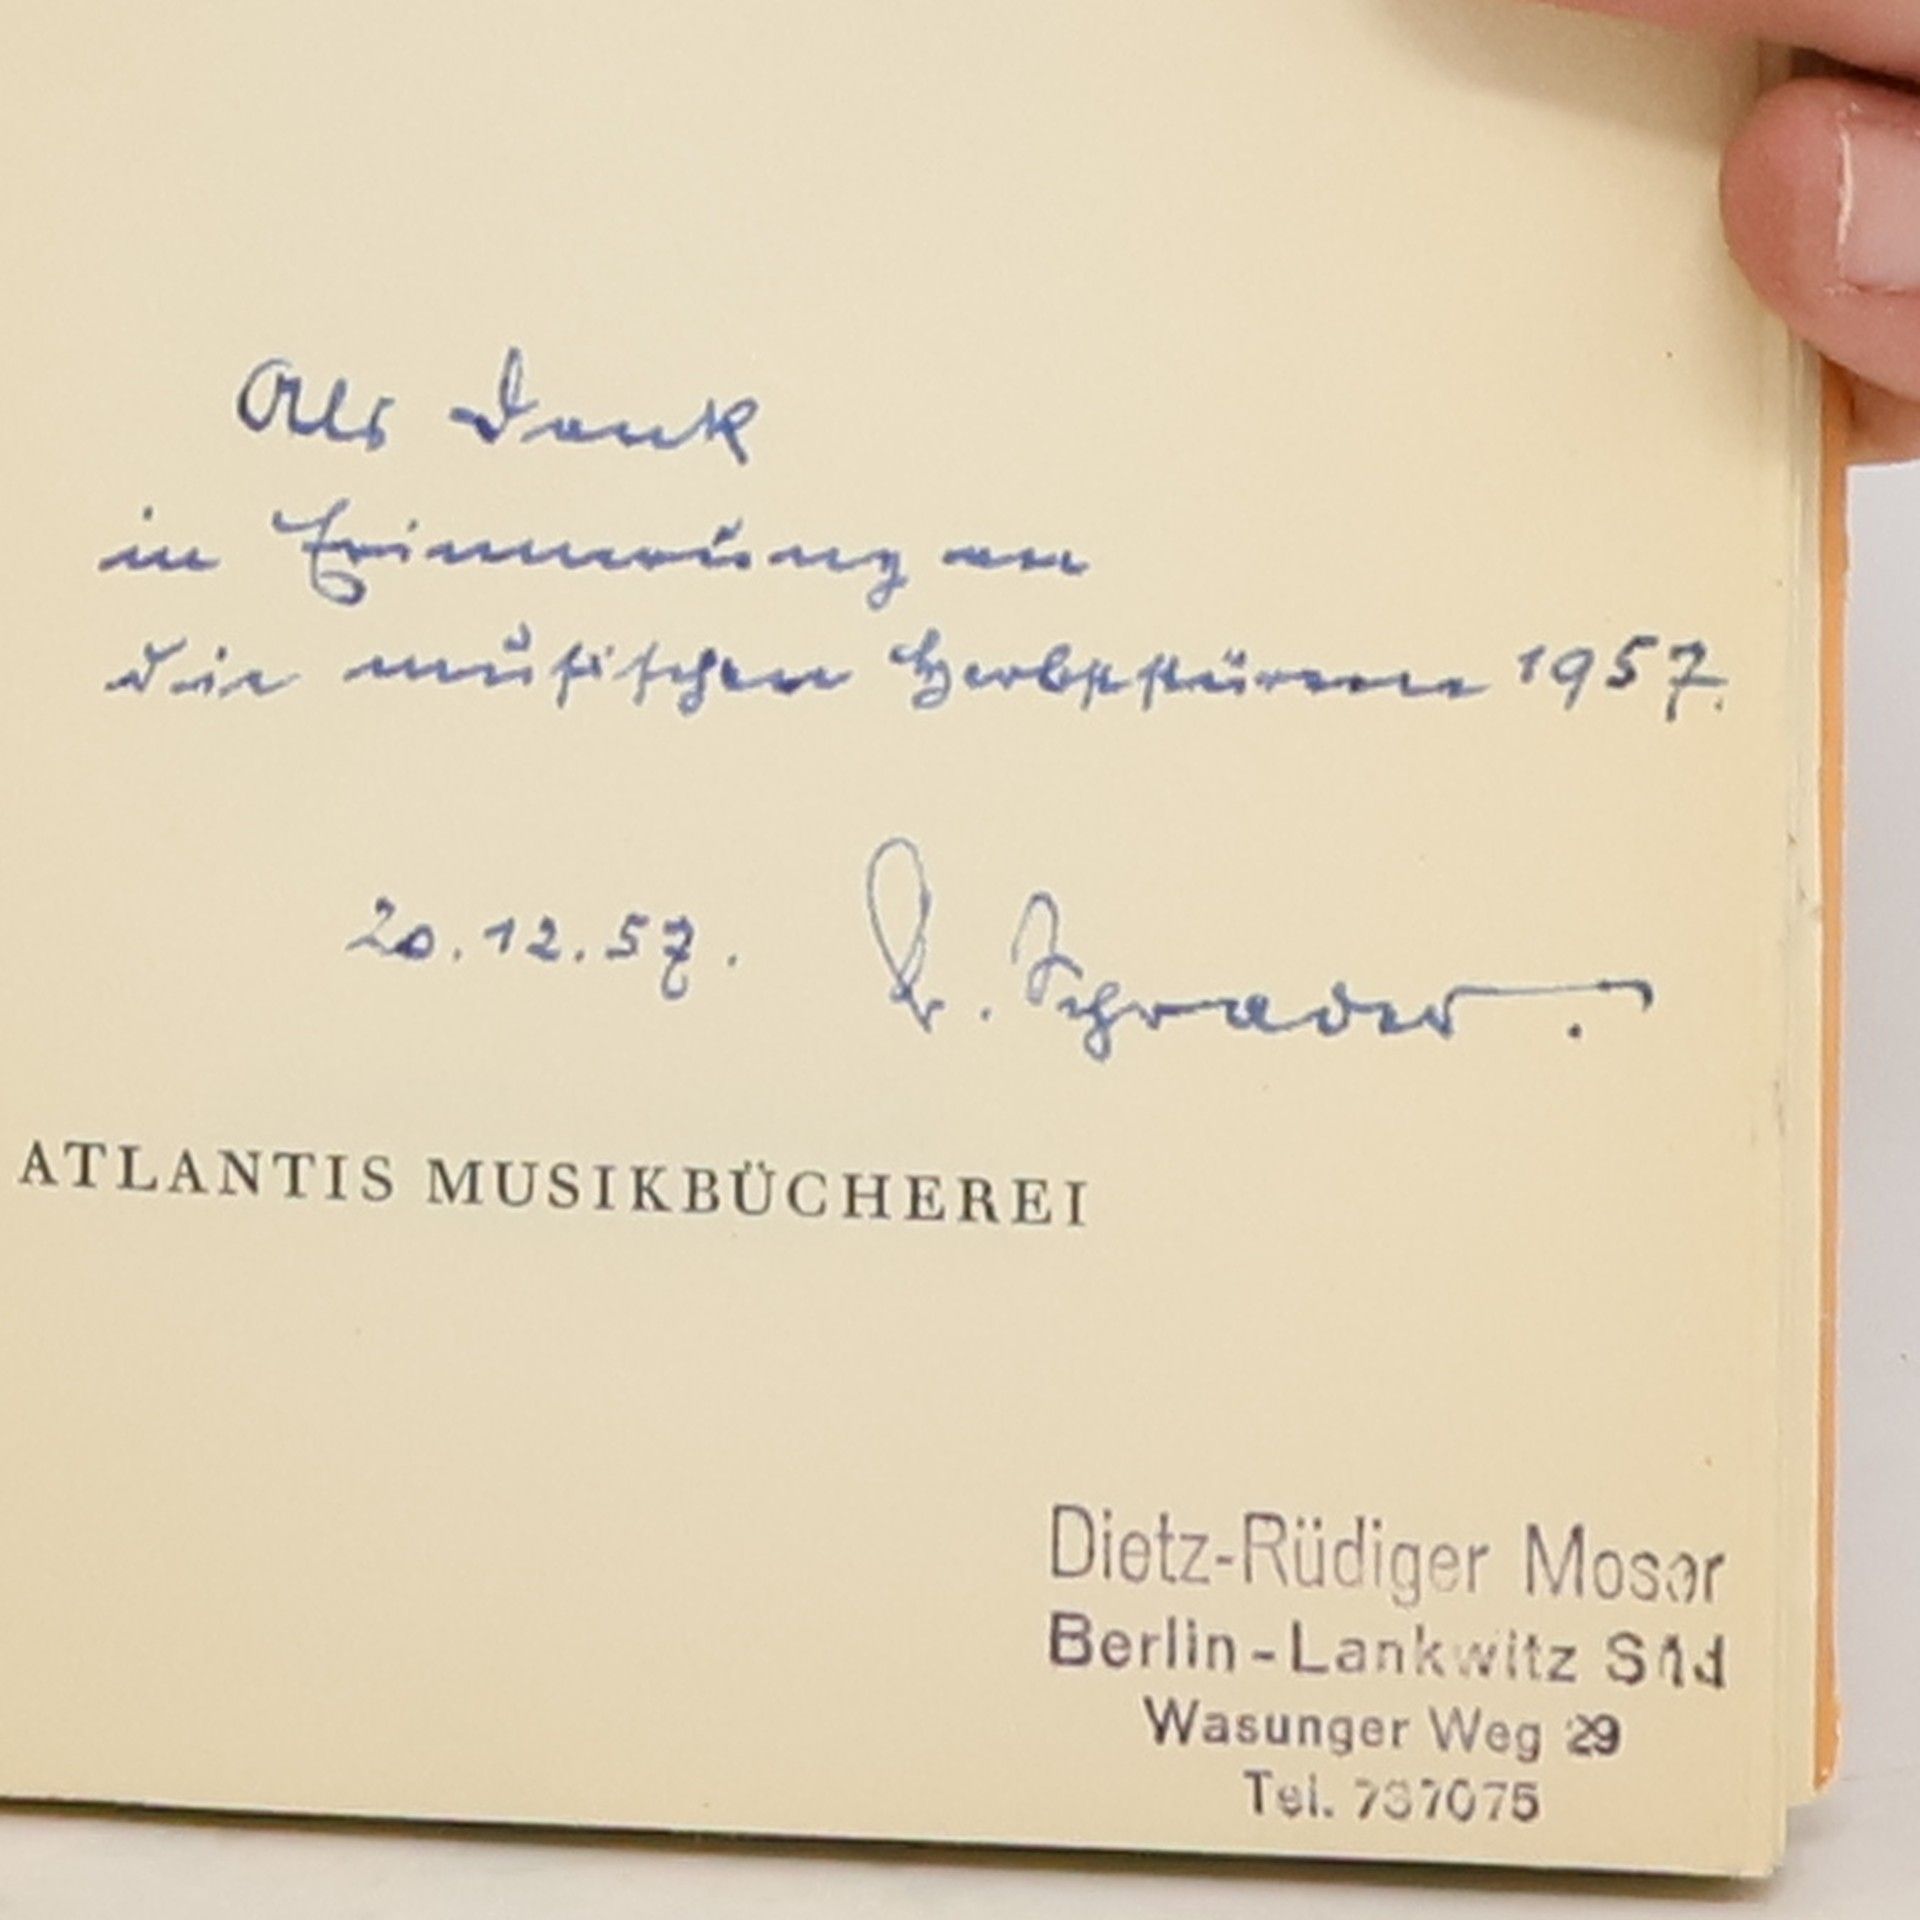 Als Dank
in Erinnerung an
die musischen Herbststürme 1957.
20.12.57. Schrader.
ATLANTIS MUSIKBÜCHEREI
Dietz-Rüdiger Moser
Berlin-Lankwitz Süd
Wasunger Weg 29
Tel. 737075